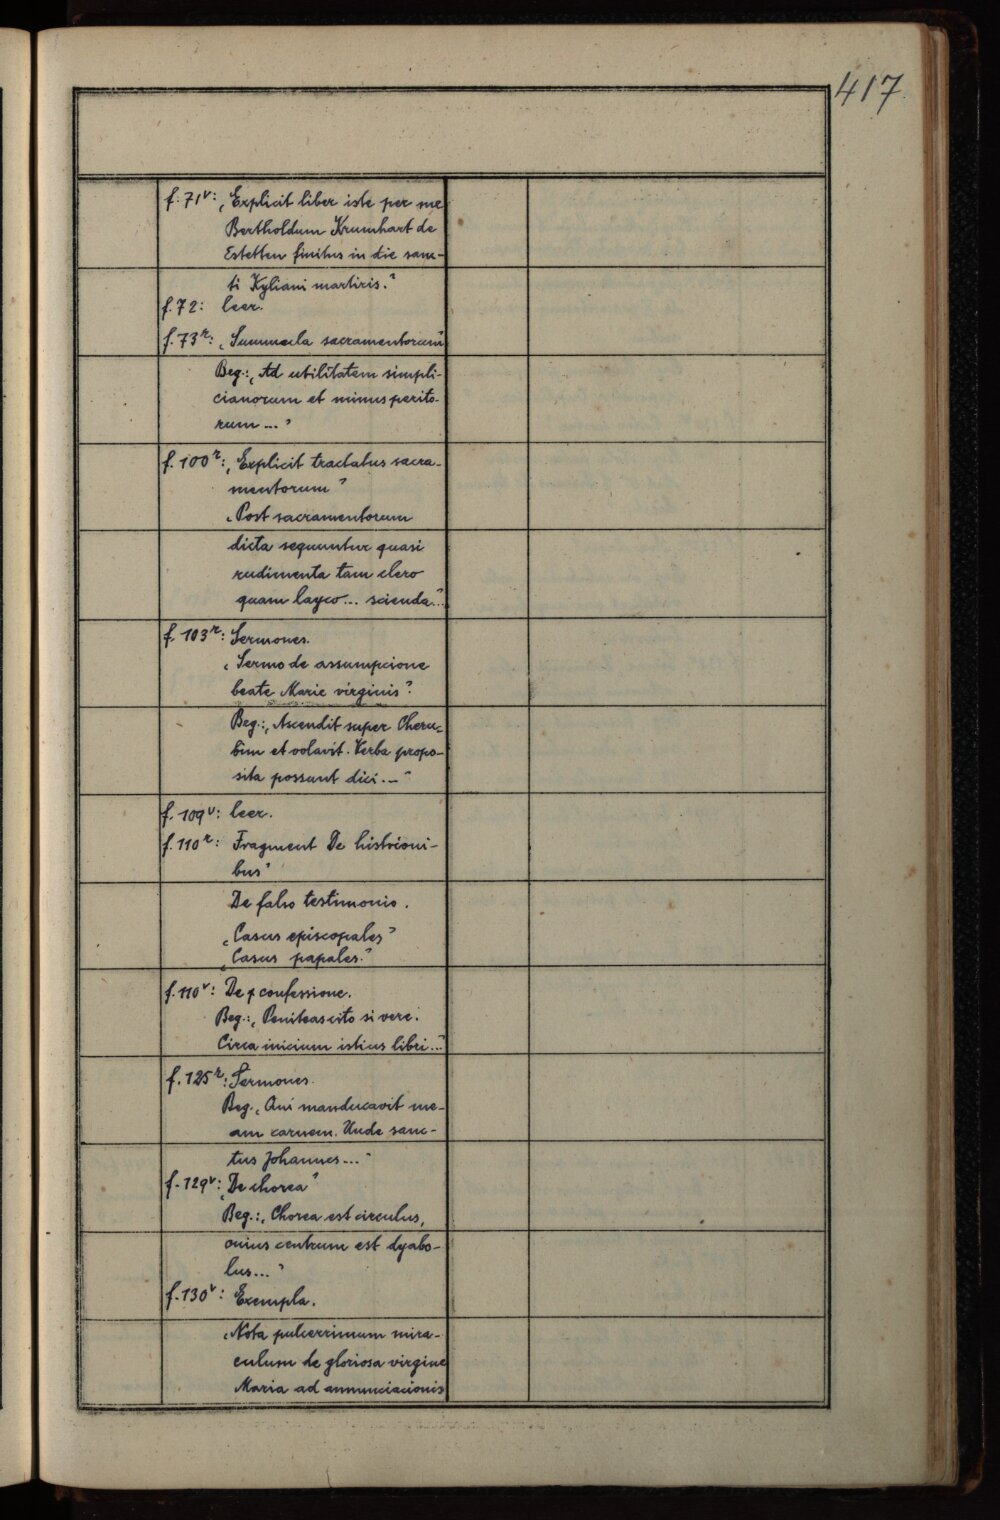 417
f. 71v: „Explicit liber iste per me
Bertholdum Krumhart de
Estetten finitus in die sanc-
ti Kyliani martiris."
f. 72: leer.
f. 73r: „Summula sacramentorum"
Beg.: „Ad utilitatem simpli-
cianorum et minus perito-
rum ..."
f. 100r: „Explicit tractatus sacra-
mentorum"
„Post sacramentorum
dicta sequuntur quasi
rudimenta tam clero
quam layco... scienda."
f. 103r: Sermones.
„Sermo de assumpcione
beate Marie virginis".
Beg.: „Ascendit super Cheru-
bim et volavit. Verba propo-
sita possunt dici..."
f. 109v: leer.
f. 110r: Fragment De histrioni-
bus"
De falso testimonio.
„Casus episcopales"
„Casus papales."
f. 110v: De confessione.
Beg.: „Peniteas cito si vere.
Circa inicium istius libri..."
f. 125r: Sermones.
Beg. „Qui manducavit me-
am carnem. Unde sanc-
tus Johannes..."
f. 129v: „De chorea"
Beg.: „Chorea est circulus,
cuius centrum est dyabo-
lus..."
f. 130v: Exempla.
„Nota pulcerrimum mira-
culum de gloriosa virgine
Maria ad annunciacionis